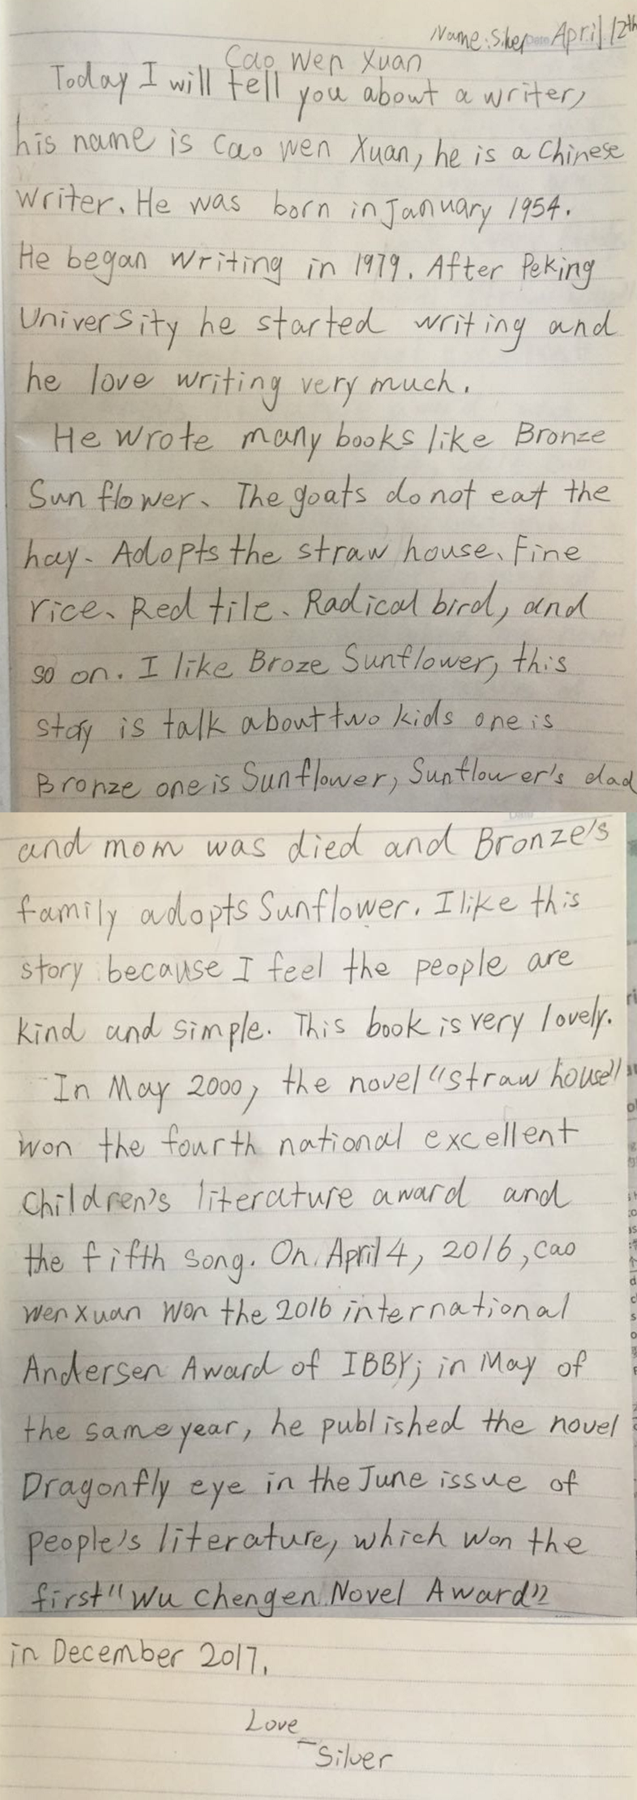 Name: Silver April 12th
Cao Wen Xuan
Today I will tell you about a writer,
his name is Cao Wen Xuan, he is a Chinese
writer. He was born in January 1954.
He began writing in 1979. After Peking
University he started writing and
he love writing very much.
He wrote many books like Bronze
Sun flower、 The goats do not eat the
hay、 Adopts the straw house、 Fine
rice、 Red tile、 Radical bird, and
so on. I like Broze Sunflower, this
stoy is talk about two kids one is
Bronze one is Sunflower, Sunflower's dad
and mom was died and Bronze's
family adopts Sunflower. I like this
story because I feel the people are
kind and simple. This book is very lovely.
In May 2000, the novel "straw house"
won the fourth national excellent
children's literature award and
the fifth song. On April 4, 2016, Cao
wen xuan won the 2016 international
Andersen Award of IBBY; in May of
the same year, he published the novel
Dragonfly eye in the June issue of
people's literature, which won the
first "Wu Chengen Novel Award"
in December 2017.
Love
—Silver